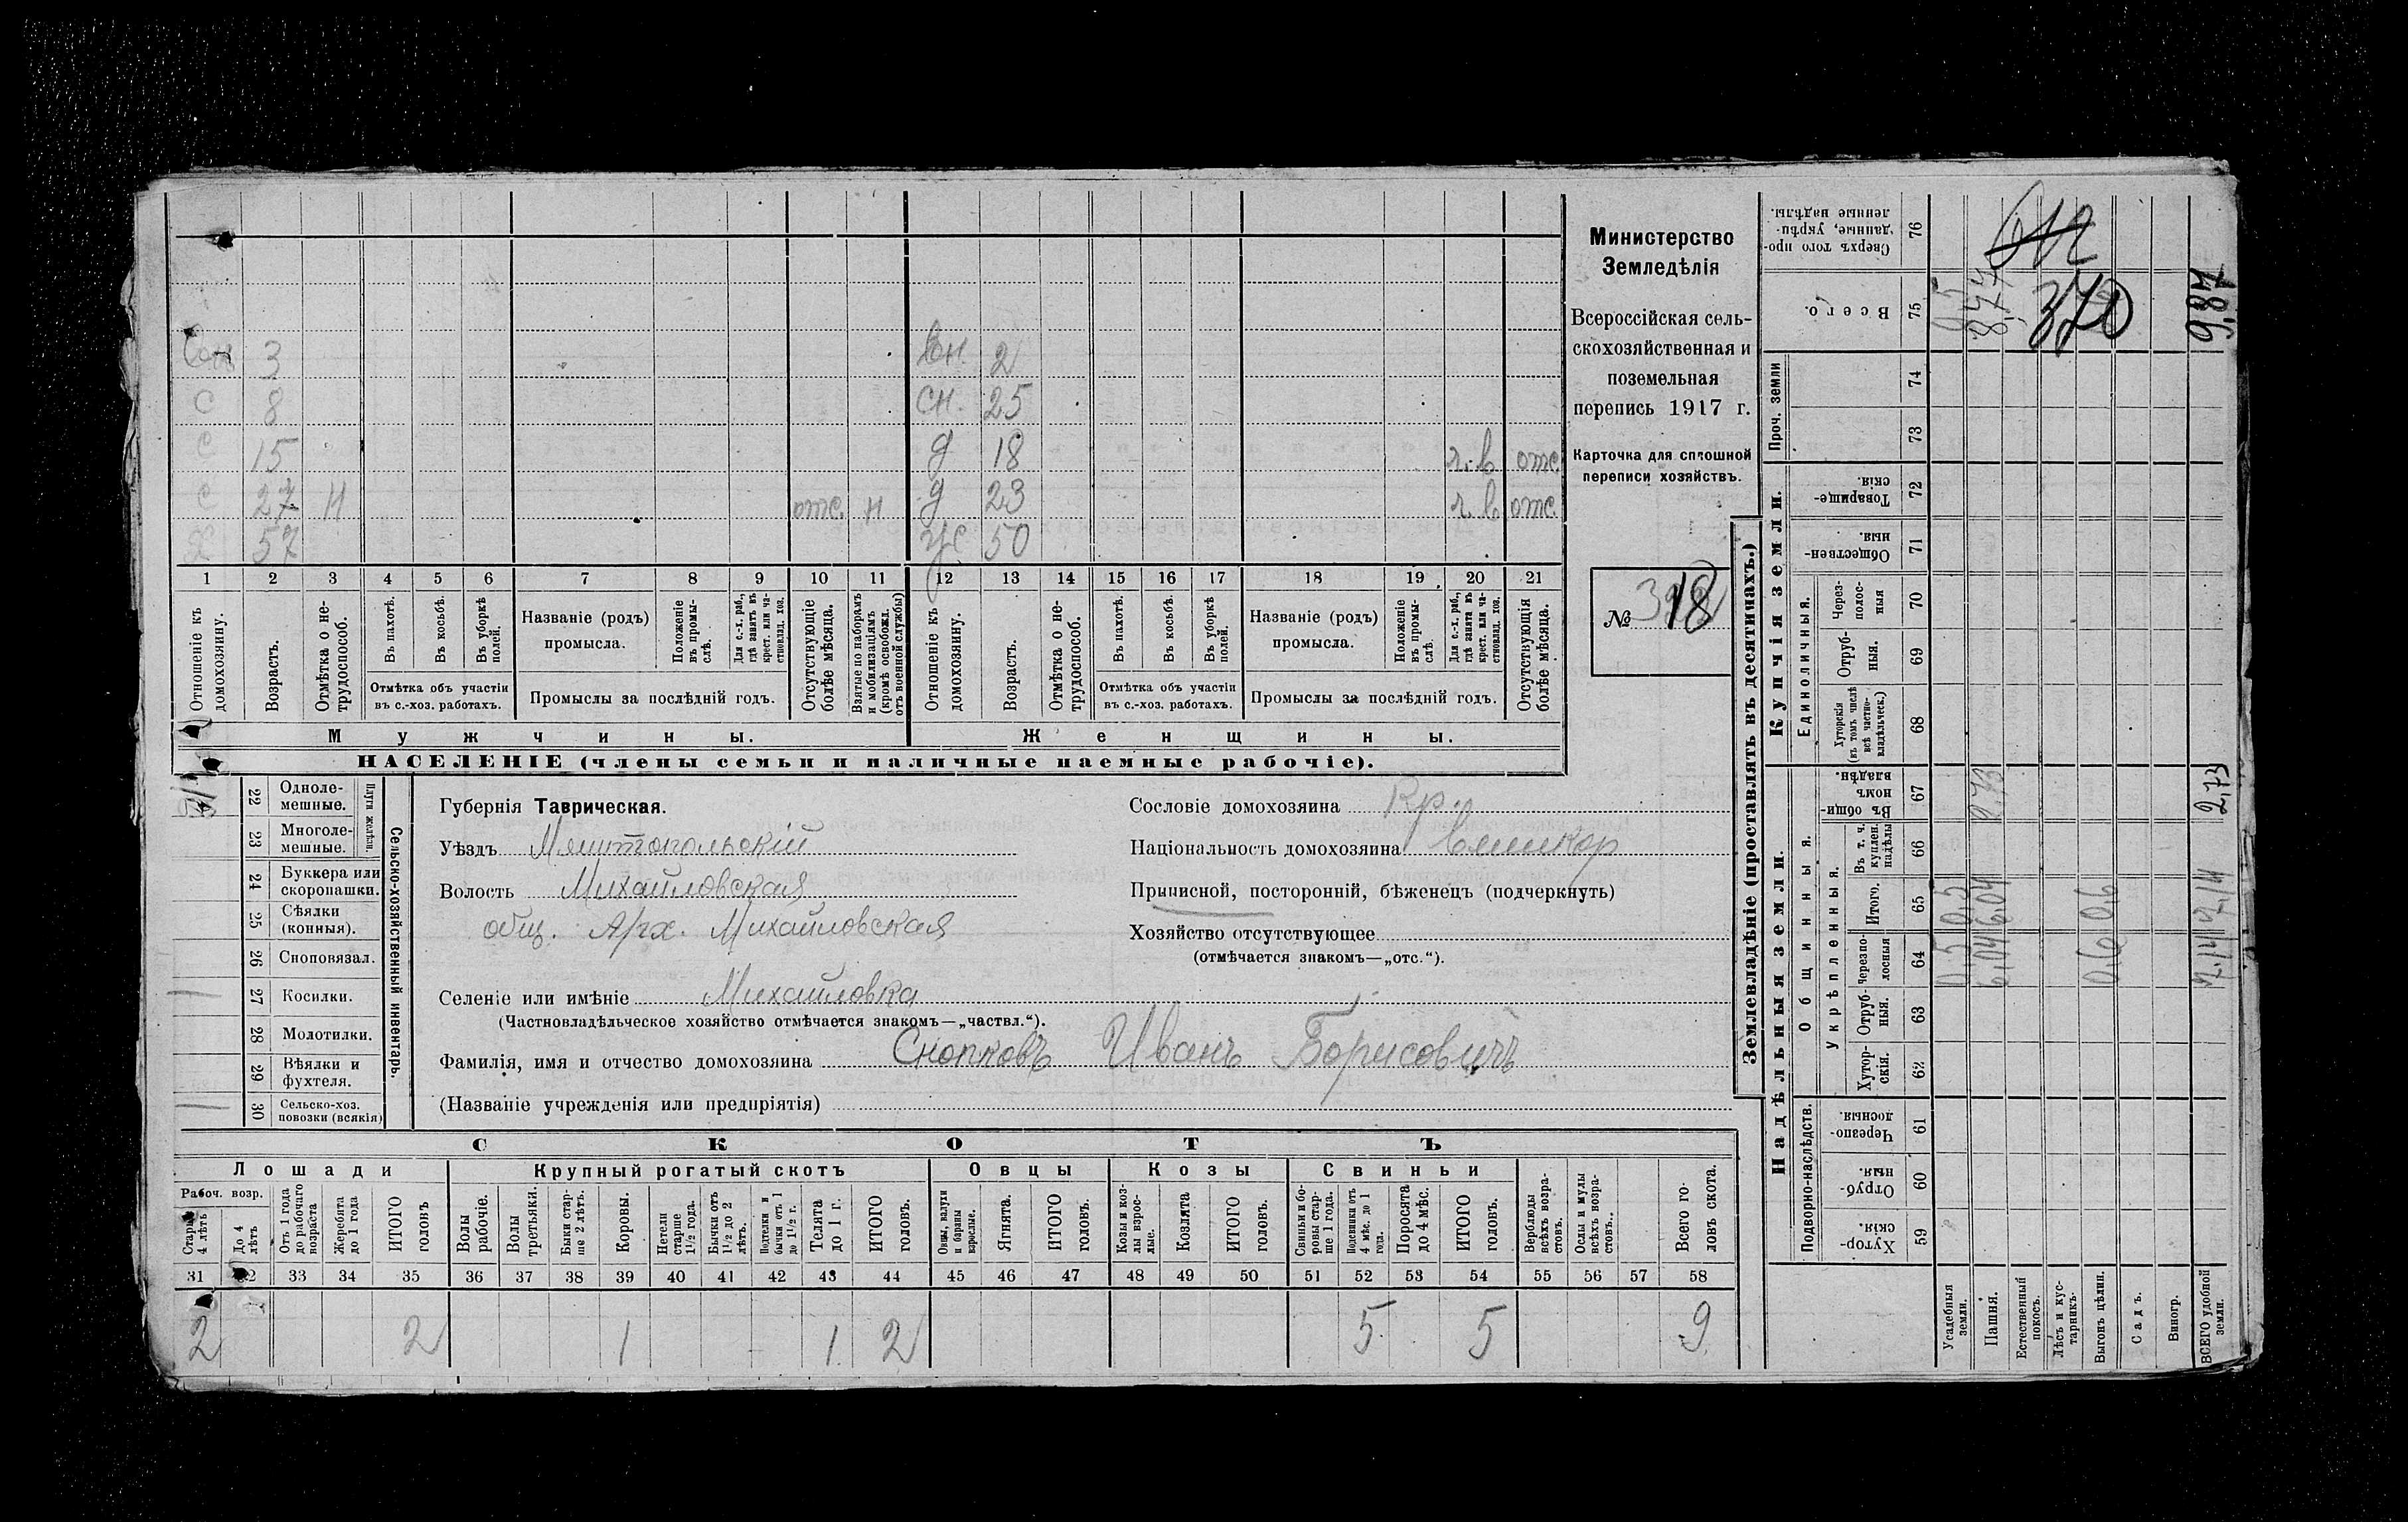 Министерство
Земледѣлія
Всероссійская сель-
скохозяйственная и
поземельная
перепись 1917 г.
Карточка для сплошной
переписи хозяйствъ.
№ 18
Сон 3 Вн. 2
С 8 сн. 25
С 15 д 18 г. в отс
С 27 Н отс н д 23 г. в отс
Х 57 Ж 50
1 2 3 4 5 6 7 8 9 10 11 12 13 14 15 16 17 18 19 20 21
Отношеніе къ домохозяину.
Возрастъ.
Отмѣтка о не-трудоспособ.
Въ пахотѣ.
Въ косьбѣ.
Въ уборкѣ полей.
Отмѣтка объ участіи
въ с.-хоз. работахъ.
Названіе (родъ)
промысла.
Положеніе въ промы-слѣ.
Для с.-х. раб., гдѣ занятъ въ крест. или ча-стновлад. хоз.
Промыслы за послѣдній годъ.
Отсутствующіе болѣе мѣсяца.
Взятые по наборамъ и мобилизаціямъ (кромѣ освобожд. отъ военной службы)
Отношеніе къ домохозяину.
Возрастъ.
Отмѣтка о не-трудоспособ.
Въ пахотѣ.
Въ косьбѣ.
Въ уборкѣ полей.
Отмѣтка объ участіи
въ с.-хоз. работахъ.
Названіе (родъ)
промысла.
Положеніе въ промы-слѣ.
Для с.-х. раб., гдѣ занята въ крест. или ча-стновлад. хоз.
Промыслы за послѣдній годъ.
Отсутствующія болѣе мѣсяца.
Мужчины. Женщины.
НАСЕЛЕНІЕ (члены семьи и наличные наемные рабочіе).
Сельско-хозяйственный инвентарь.
Плуги желѣзн.
22 Одноле-мешные.
23 Многоле-мешные.
24 Буккера или скоропашки.
25 Сѣялки (конныя).
26 Сноповязал.
1 27 Косилки.
28 Молотилки.
29 Вѣялки и фухтеля.
1 30 Сельско-хоз. повозки (всякія)
Губернія Таврическая.
Уѣздъ Мелитопольскій
Волость Михайловская
общ. Арх. Михайловская
Селеніе или имѣніе Михайловка
(Частновладѣльческое хозяйство отмѣчается знакомъ—„частвл.“).
Фамилія, имя и отчество домохозяина Снопковъ Иванъ Борисовичъ
(Названіе учрежденія или предпріятія)
Сословіе домохозяина Кр.
Національность домохозяина Великор
Приписной, посторонній, бѣженецъ (подчеркнуть)
Хозяйство отсутствующее
(отмѣчается знакомъ—„отс.“).
СКОТЪ
Лошади Крупный рогатый скотъ Овцы Козы Свиньи
Рабоч. возр.
Старше 4 лѣтъ
До 4 лѣтъ
Отъ 1 года до рабочаго возраста
Жеребята до 1 года
ИТОГО головъ
Волы рабочіе.
Волы третьяки.
Быки стар-ше 2 лѣтъ.
Коровы.
Нетели старше 1½ года.
Бычки отъ 1½ до 2 лѣтъ.
Подтелки и бычки отъ 1 до 1½ г.
Телята до 1 г.
ИТОГО головъ.
Овцы, валухи и бараны взрослые.
Ягнята.
ИТОГО головъ.
Козы и коз-лы взрос-лые.
Козлята
ИТОГО головъ.
Свиньи и бо-ровы стар-ше 1 года.
Подсвинки отъ 4 мѣс. до 1 года.
Поросята до 4 мѣс.
ИТОГО головъ.
Верблюды всѣхъ возра-стовъ.
Ослы и мулы всѣхъ возра-стовъ.
Всего го-ловъ скота.
31 32 33 34 35 36 37 38 39 40 41 42 43 44 45 46 47 48 49 50 51 52 53 54 55 56 57 58
2 2 1 1 2 5 5 9
Землевладѣніе (проставлять въ десятинахъ.)
Надѣльныя земли. Купчія земли. Проч. земли
Подворно-наслѣдств.
Общинныя.
Укрѣпленныя.
Единоличныя.
59 Хутор-скія.
60 Отруб-ныя.
61 Черезпо-лосныя.
62 Хутор-скія.
63 Отруб-ныя.
64 Черезпо-лосныя
65 Итого.
66 Въ т. ч. куплен. надѣлы
67 Въ общин-номъ владѣн.
68 Хуторскія (въ томъ числѣ всѣ частно-владѣльческ.)
69 Отруб-ныя.
70 Через-полос-ныя
71 Обществен-ныя.
72 Товарище-скія.
73
74
75 Всего.
76 Сверхъ того про-данные, укрѣп-ленные надѣлы.
Усадебныя земли. 0,5 0,5 0,5
Пашня. 6,04 6,04 2,73 8,77
Естественный покосъ.
Лѣсъ и кус-тарникъ.
Выгонъ цѣлин. 0,6 0,6
Садъ.
Виногр.
ВСЕГО удобной земли. 7,14 7,14 2,73 9,87
370